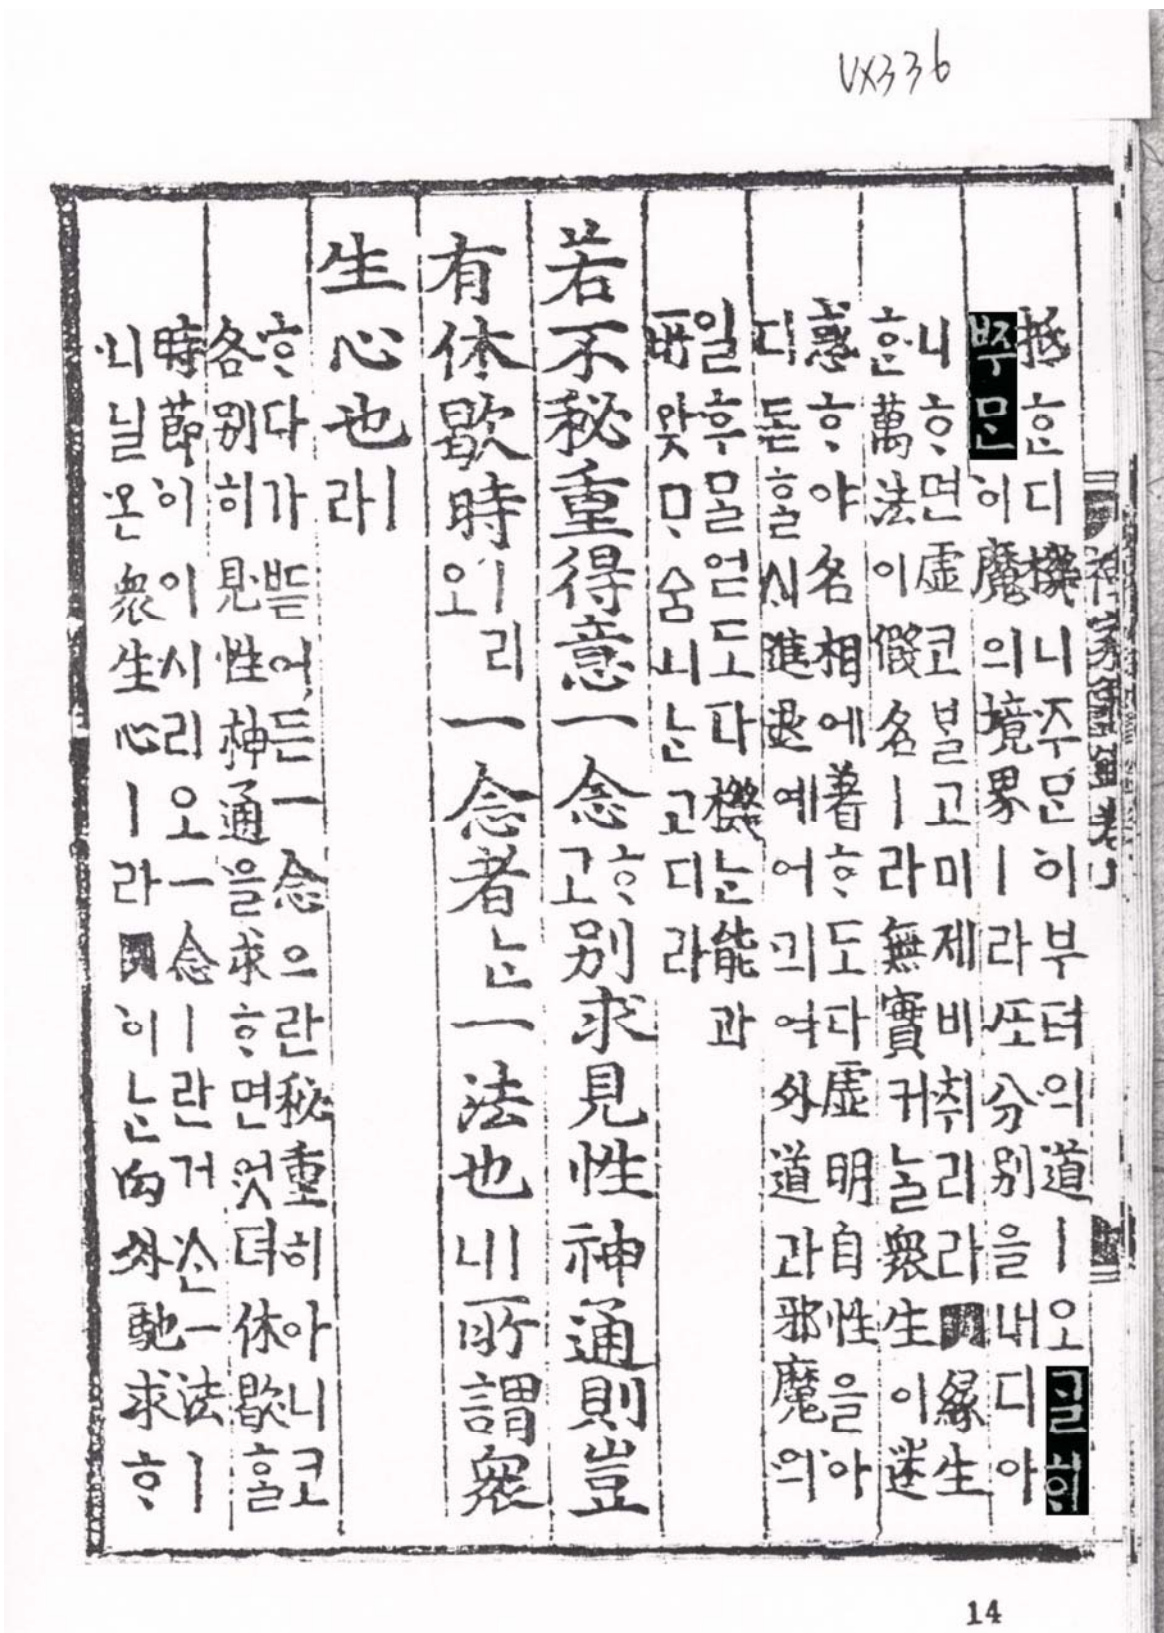 VX336
抵ᄒᆞᆫ디機니주ᄆᆞᆫ이부텨의道ㅣ오ᄀᆞᆯᄒᆡ
ᄧᅮᄆᆞᆫ이魔의境界ㅣ라ᄯᅩ分別을내디아
니ᄒᆞ면虛코ᄇᆞᆯ고미제비취리라緣生
ᄒᆞᆫ萬法이假名ㅣ라無實커ᄂᆞᆯ衆生이迷
惑ᄒᆞ야名相에著ᄒᆞ도다虛明自性을아
디몯ᄒᆞᆯᄉᆡ進退예어긔여外道과邪魔의
일후믈얻도다機ᄂᆞᆫ能과
所왓ᄆᆞᅀᆞᆷ니ᄂᆞᆫ고디라
若不秘重得意一念ᄒᆞ고別求見性神通則豈
有休歇時ㅣ리오一念者ᄂᆞᆫ一法也ㅣ니所謂衆
生心也ㅣ라
ᄒᆞ다가ᄠᅳᆮ어든一念으란秘重히아니코
各別히見性神通을求ᄒᆞ면엇뎌休歇ᄒᆞᆯ
時節이이시리오一念ㅣ란거ᄉᆞᆫ一法ㅣ
니닐온衆生心ㅣ라이ᄂᆞᆫ向外馳求ᄒᆞ
14